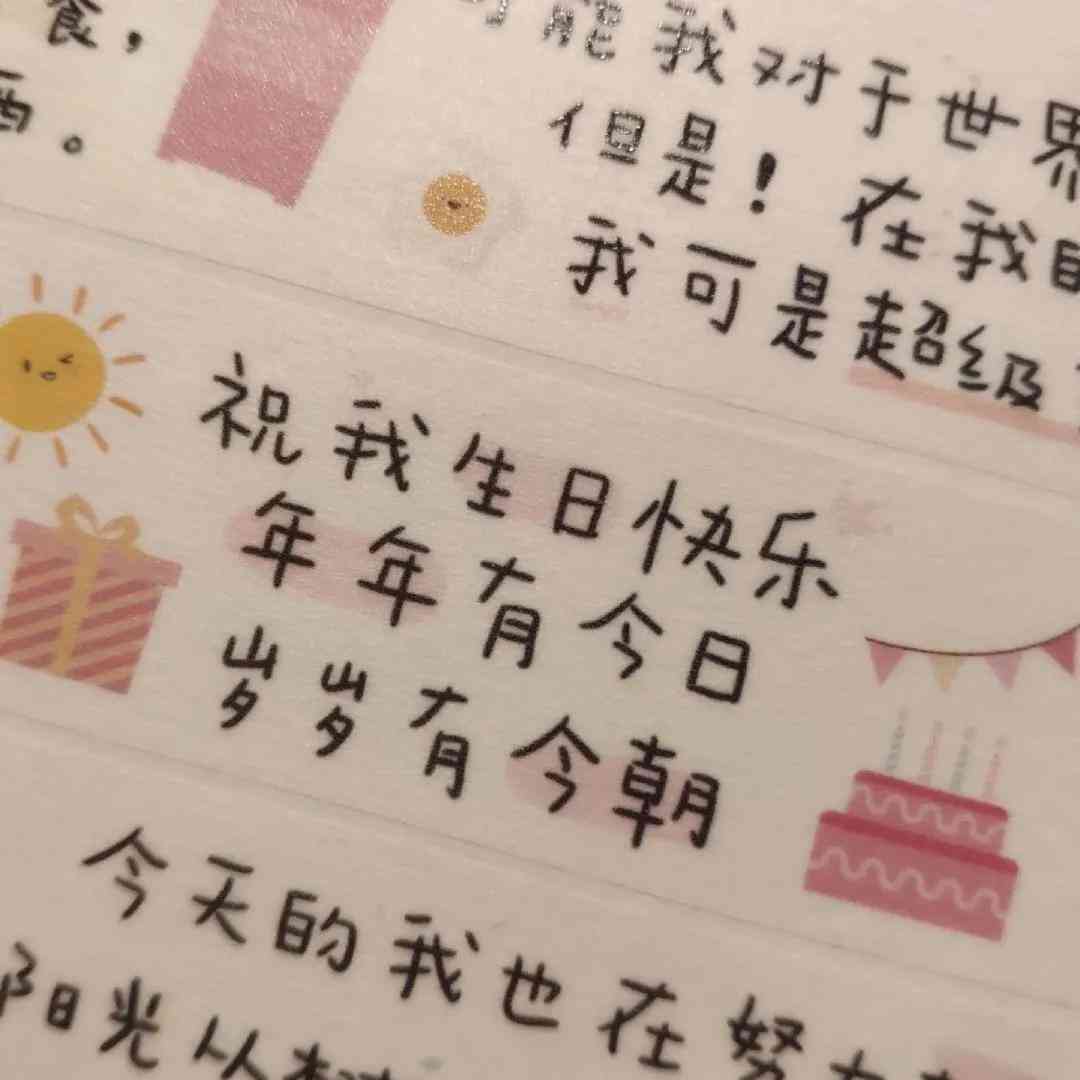 食，
。
能我对于世界
但是！在我的
我可是超级
祝我生日快乐
年年有今日
岁岁有今朝
今天的我也在努力
阳光从